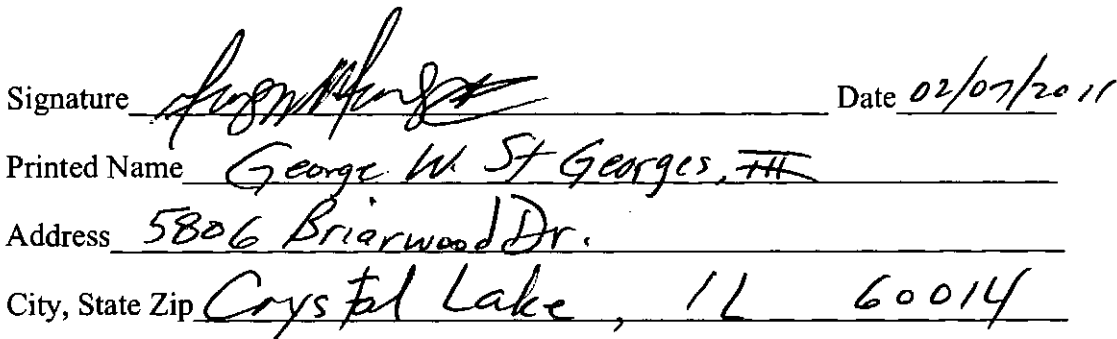 Signature Date 02/07/2011
Printed Name George W. St Georges, III
Address 5806 Briarwood Dr.
City, State Zip Crystal Lake, IL 60014